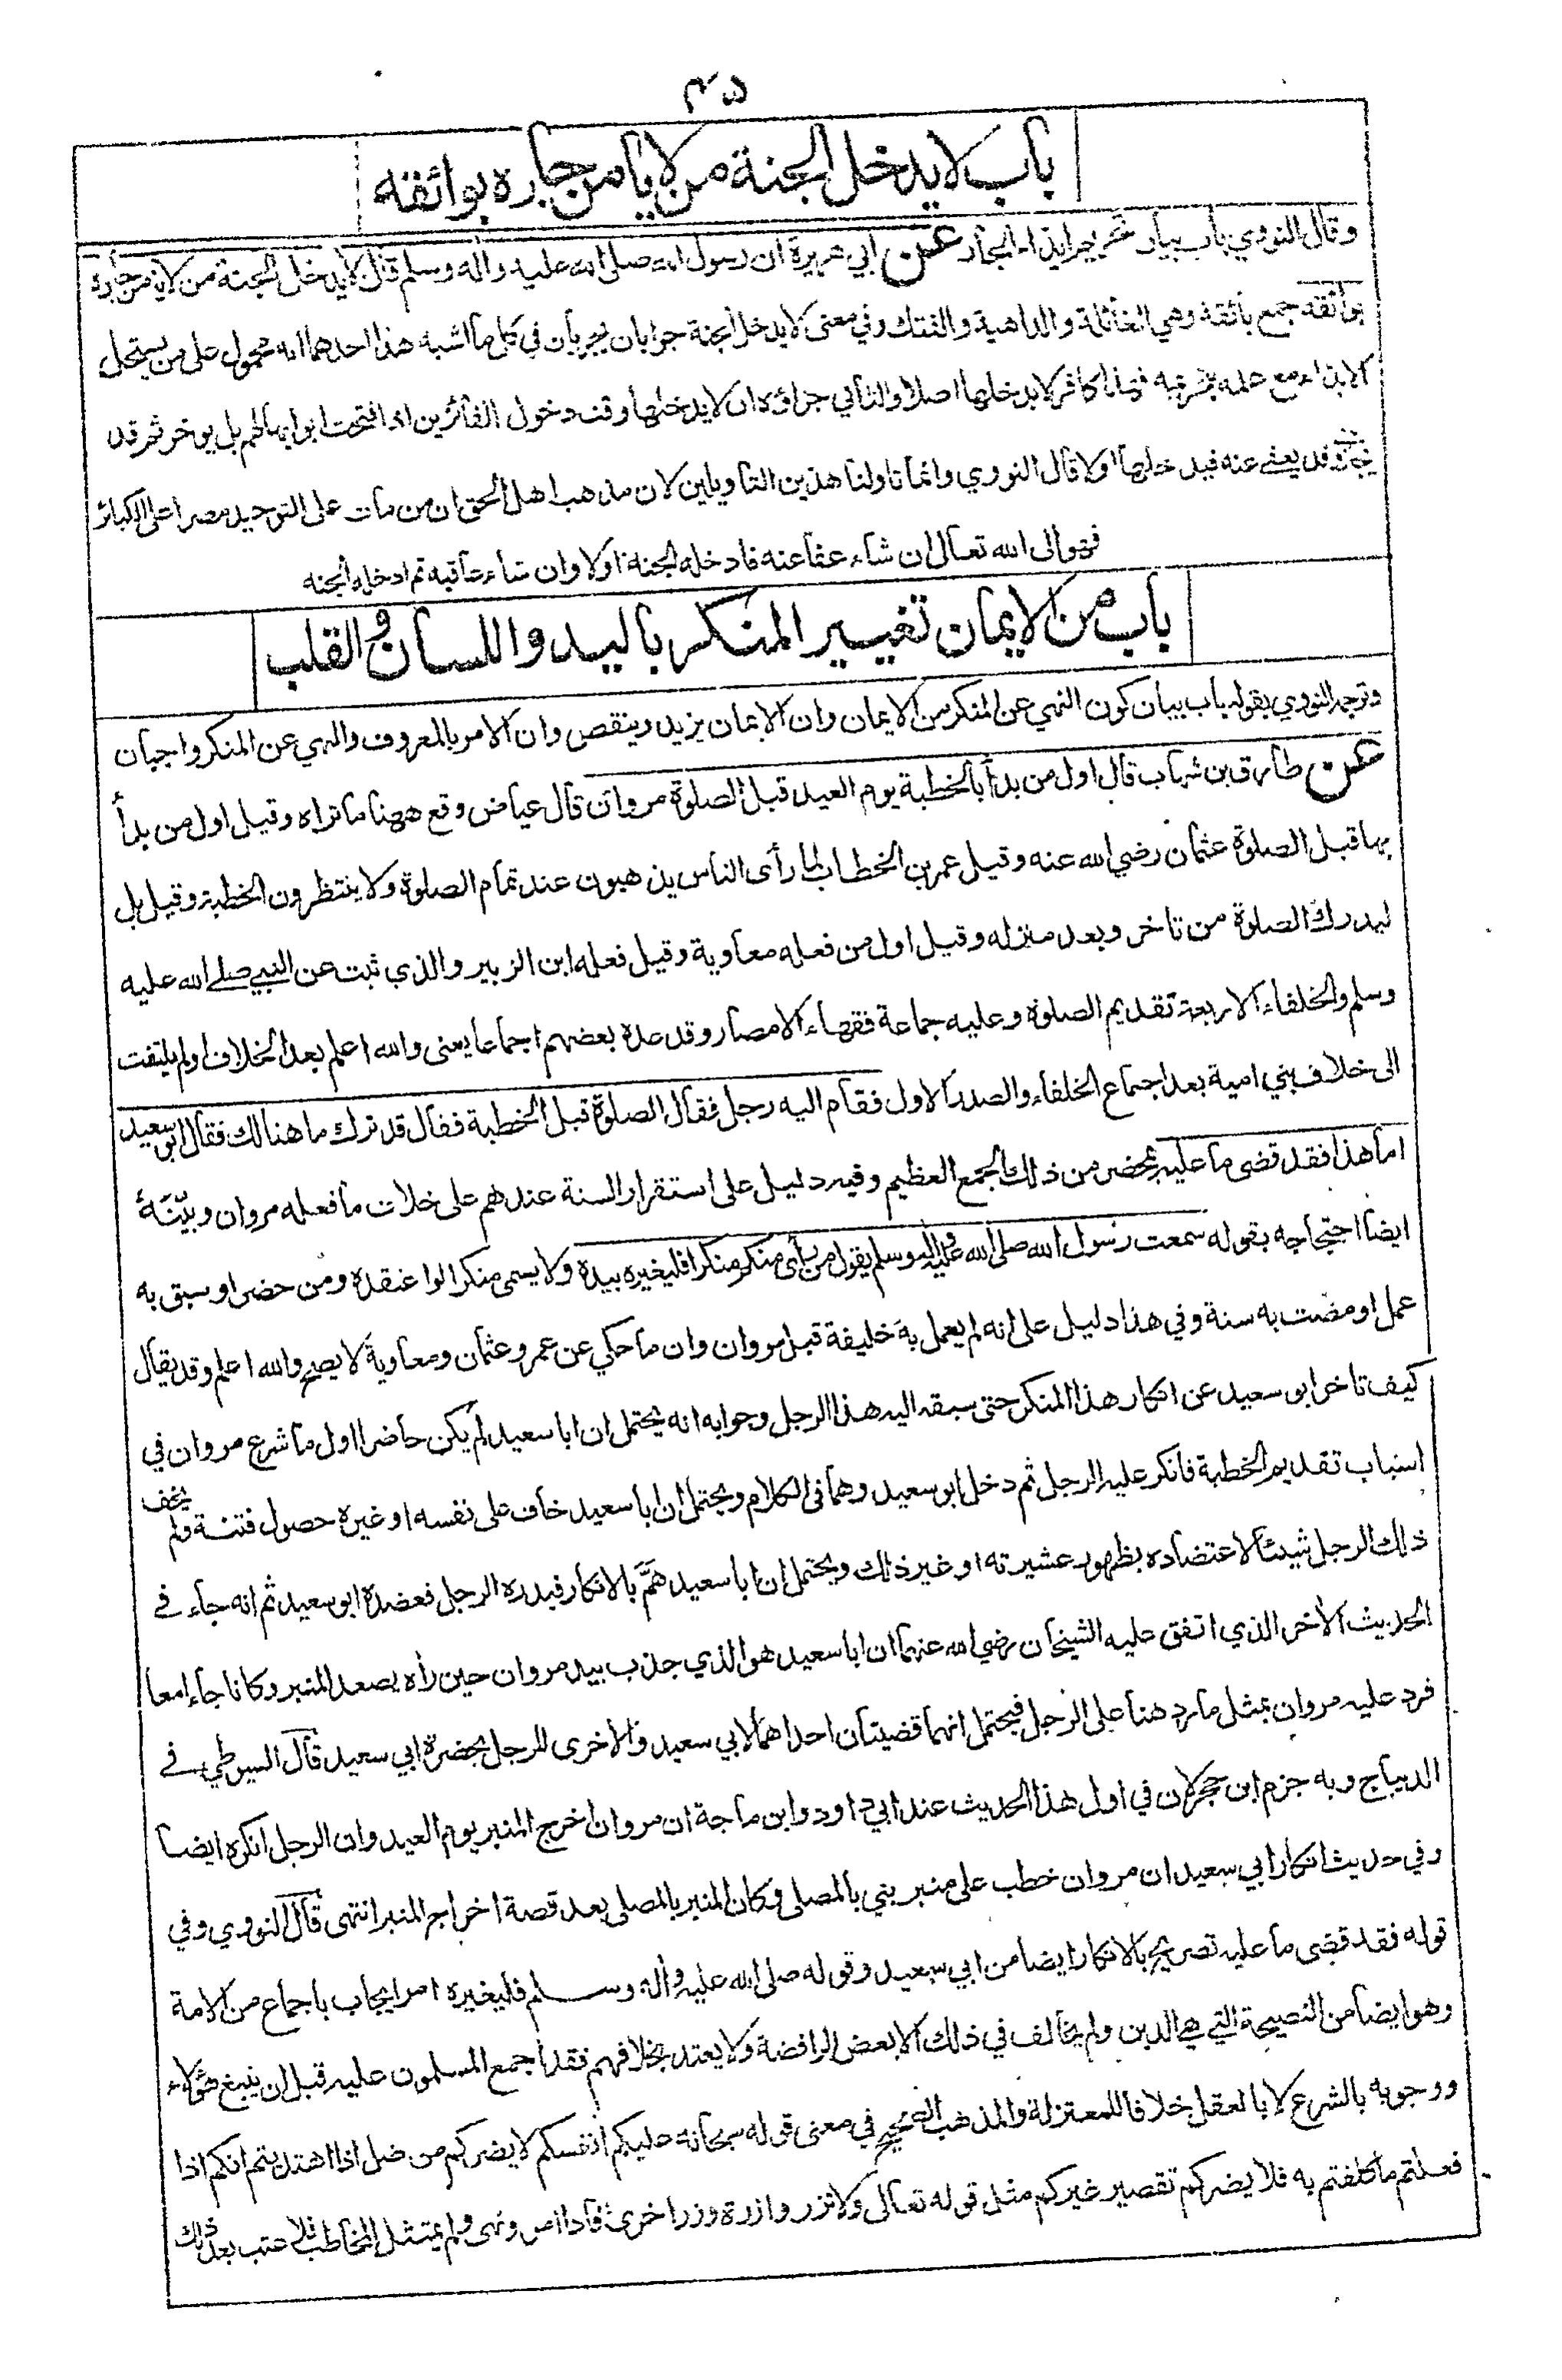 ۴۵
باب لا يدخل الجنة من لا يأمن جاره بوائقه
وقال النووي باب بيان تحريم ايذاء الجار عن ابي هريرة ان رسول الله صلى الله عليه واله وسلم قال لا يدخل الجنة من لا يأمن جاره
بوائقه جمع بائقة وهي الغائلة والداهية والفتك وفي معنى لا يدخل الجنة جوابان يجريان في كل ما اشبه هذا احدهما انه محمول على من يستحل
الايذاء مع علمه بتحريمه فهذا كافر لا يدخلها اصلا والثاني جزاؤه ان لا يدخلها وقت دخول الفائزين اذا فتحت ابوابها لهم بل يؤخر ثم قد
يجازى وقد يعفى عنه فيدخلها اولا قال النووي وانما تاولنا هذين التاويلين لان مذهب اهل الحق ان من مات على التوحيد مصرا على الكبائر
فهو الى الله تعالى ان شاء عفا عنه فادخله الجنة اولا وان شاء عاقبه ثم ادخله الجنة
باب من الايمان تغيير المنكر باليد واللسان والقلب
وترجمه النووي بقوله باب بيان كون النهي عن المنكر من الايمان وان الايمان يزيد وينقص وان الامر بالمعروف والنهي عن المنكر واجبان
عن طارق بن شهاب قال اول من بدأ بالخطبة يوم العيد قبل الصلوة مروان قال عياض وقع ههنا ما تراه وقيل اول من بدأ
بها قبل الصلوة عثمان رضي الله عنه وقيل عمر بن الخطاب لما رأى الناس يذهبون عند تمام الصلوة ولا ينتظرون الخطبة وقيل بل
ليدرك الصلوة من تاخر وبعد منزله وقيل اول من فعله معاوية وقيل فعله ابن الزبير والذي ثبت عن النبي صلى الله عليه
وسلم والخلفاء الاربعة تقديم الصلوة وعليه جماعة فقهاء الامصار وقد عده بعضهم اجماعا يعنى والله اعلم بعد الخلاف او لم يلتفت
الى خلاف بني امية بعد اجماع الخلفاء والصدر الاول فقام اليه رجل فقال الصلوة قبل الخطبة فقال قد ترك ما هنالك فقال ابو سعيد
اما هذا فقد قضى ما عليه بمحضر من ذلك الجمع العظيم وفيه دليل على استقرار السنة عندهم على خلاف ما فعله مروان وبيّنه
ايضا احتجاجه بقوله سمعت رسول الله صلى الله عليه واله وسلم يقول من رأى منكم منكرا فليغيره بيده ولا يسمى منكرا لو اعتقده ومن حضر او سبق به
عمل او مضت به سنة وفي هذا دليل على انه لم يعمل به خليفة قبل مروان وان ما حكي عن عمر وعثمان ومعاوية لا يصح والله اعلم وقد يقال
كيف تاخر ابو سعيد عن انكار هذا المنكر حتى سبقه اليه هذا الرجل وجوابه انه يحتمل ان ابا سعيد لم يكن حاضرا اول ما شرع مروان في
اسباب تقديم الخطبة فانكر عليه الرجل ثم دخل ابو سعيد وهما في الكلام ويحتمل ان ابا سعيد خاف على نفسه او غيره حصول فتنة ولم يخف
ذلك الرجل شيئا لاعتضاده بظهور عشيرته او غير ذلك ويحتمل ان ابا سعيد همّ بالانكار فبدره الرجل فعضده ابو سعيد ثم انه جاء في
الحديث الأخر الذي اتفق عليه الشيخان رضي الله عنهما ان ابا سعيد هو الذي جذب بيد مروان حين رأه يصعد المنبر وكانا جاءا معا
فرد عليه مروان بمثل ما رد هنا على الرجل فيحتمل انهما قضيتان احداهما لابي سعيد والأخرى للرجل بحضرة ابي سعيد قال السيوطي في
الديباج وبه جزم ابن حجر لان في اول هذا الحديث عند ابي داود وابن ماجة ان مروان اخرج المنبر يوم العيد وان الرجل انكره ايضا
وفي حديث انكار ابي سعيد ان مروان خطب على منبر بني بالمصلى وكان المنبر بالمصلى بعد قصة اخراج المنبر انتهى قال النووي وفي
قوله فقد قضى ما عليه تصريح بالانكار ايضا من ابي سعيد وقوله صلى الله عليه واله وسلم فليغيره امر ايجاب باجماع من الامة
وهو ايضا من النصيحة التي هي الدين ولم يخالف في ذلك الا بعض الرافضة ولا يعتد بخلافهم فقد اجمع المسلمون عليه قبل ان ينبغ هؤلاء
ووجوبه بالشرع لا بالعقل خلافا للمعتزلة والمذهب الصحيح في معنى قوله سبحانه عليكم انفسكم لا يضركم من ضل اذا اهتديتم انكم اذا
فعلتم ما كلفتم به فلا يضركم تقصير غيركم مثل قوله تعالى ولا تزر وازرة وزر اخرى فاذا امر ونهى ولم يمتثل المخاطب فلا عتب بعد ذلك